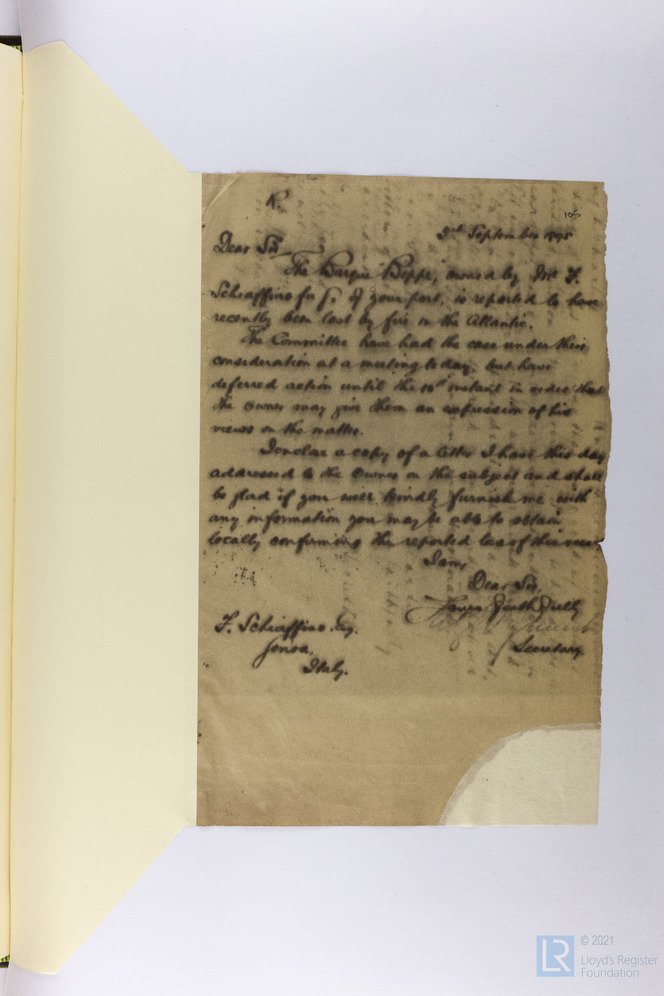 R.
105
3rd September 1895
Dear Sir,
The Barque "Beppe", owned by Mr F.
Schiaffino fu G. of your port, is reported to have
recently been lost by fire in the Atlantic.
The Committee have had the case under their
consideration at a meeting to day, but have
deferred action until the 10th instant in order that
the owner may give them an expression of his
views on the matter.
I enclose a copy of a letter I have this day
addressed to the Owner on the subject and shall
be glad if you will kindly furnish me with
any information you may be able to obtain
locally confirming the reported loss of this vessel
I am,
Dear Sir,
Yours faithfully
Secretary.
F. Schiaffino Esq.
Genoa,
Italy.
© 2021
Lloyd's Register
Foundation
LR